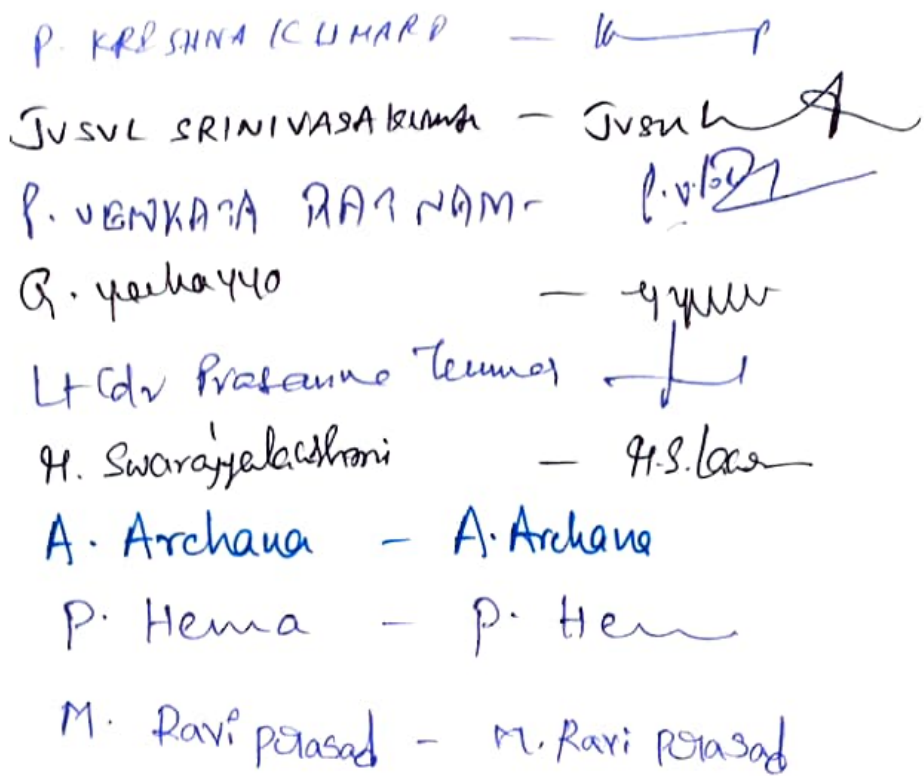 P. KRISHNA KUMARD -
JUSUL SRINIVASA KUMAR - Jusul
P. VENKATA RATNAM - P.V.
G. yerhayyo -
Lt Cdr Prasanna Kumar
H. Swarajyalakshmi - H.S.
A. Archana - A. Archana
P. Hema - P. Hem
M. Ravi prasad - M. Ravi prasad